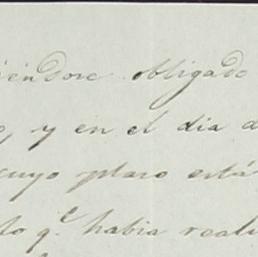 iéndose obligado
o, y en el dia d
cuyo plaso está
do q.e habia reali